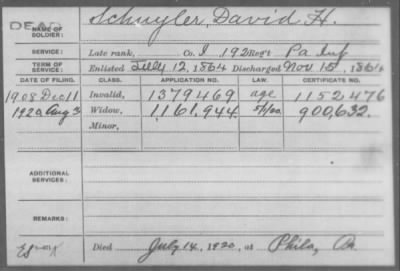 DEAD
NAME OF SOLDIER: Schuyler, David H.
SERVICE: Late rank, Co. I, 192 Reg't Pa. Inf
TERM OF SERVICE: Enlisted July 12, 1864 Discharged Nov 15, 1864
DATE OF FILING. CLASS. APPLICATION NO. LAW. CERTIFICATE NO.
1908 Dec 11 Invalid, 1379469 age 1152476
1920 Aug 3 Widow, 1161,944 900,632.
Minor,
ADDITIONAL SERVICES:
REMARKS:
Died July 14, 1920, at Phila, Pa.